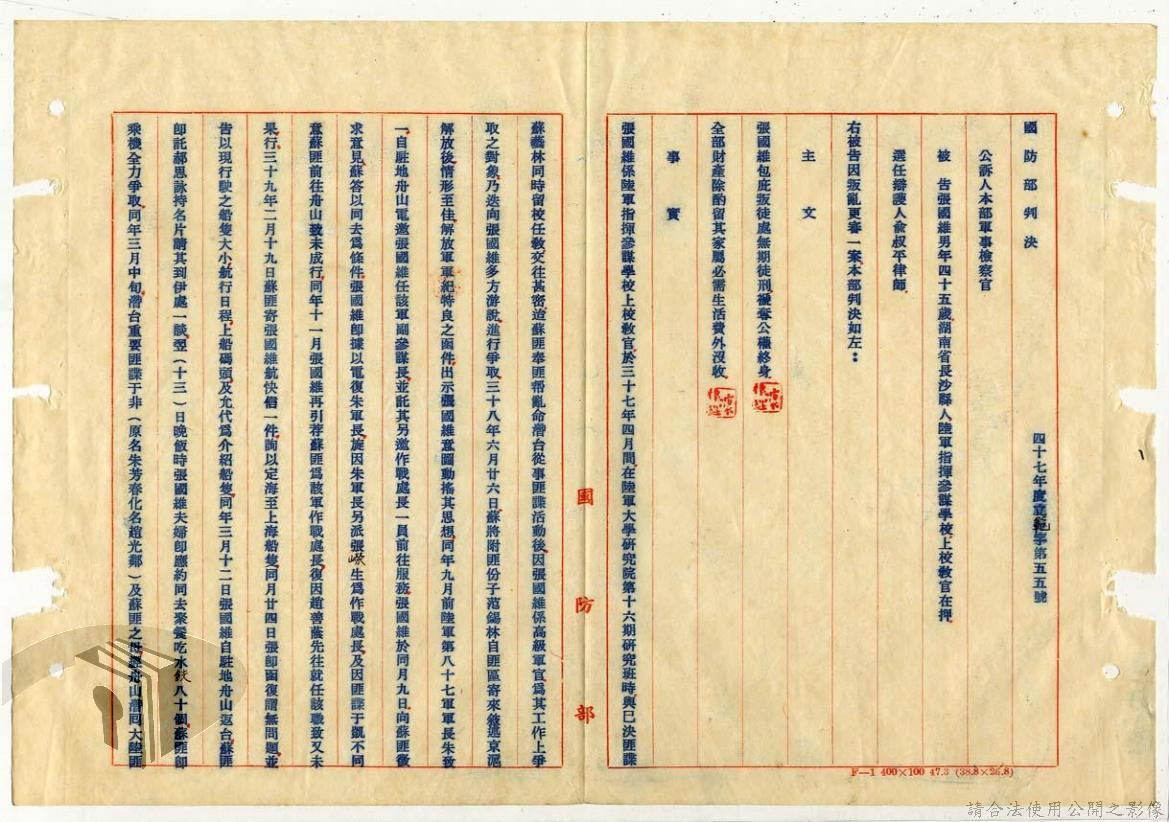 國防部判決
四十七年度範字第五五號
公訴人本部軍事檢察官
被告張國維男年四十五歲湖南省長沙縣人陸軍指揮參謀學校上校教官在押
選任辯護人俞叔平律師
右被告因叛亂更審一案本部判決如左：
主文
張國維包庇叛徒處無期徒刑褫奪公權終身
全部財產除酌留其家屬必需生活費外沒收
事實
張國維係陸軍指揮參謀學校上校教官於三十七年四月間在陸軍大學研究院第十六期研究班時與已決匪諜
蘇藝林同時留校任教交往甚密迨蘇匪奉匪幫亂命潛台從事匪諜活動後因張國維係高級軍官為其工作上爭
取之對象乃迭向張國維多方游說進行爭取三十八年六月廿六日蘇將附匪份子范錫林自匪區寄來敘述京滬
解放後情形至佳解放軍軍紀特良之函件出示張國維意圖動搖其思想同年九月前陸軍第八十七軍軍長朱致
一自駐地舟山電邀張國維任該軍副參謀長並託其另邀作戰處長一員前往服務張國維於同月九日向蘇匪徵
求意見蘇答以同去為條件張國維即據以電復朱軍長旋因朱軍長另派張嶔生為作戰處長及因匪諜于凱不同
意蘇匪前往舟山致未成行同年十一月張國維再引荐蘇匪為該軍作戰處長復因趙善蔭先往就任該職致又未
果行三十九年二月十九日蘇匪寄張國維航快信一件詢以定海至上海船隻同月廿四日張即函復謂無問題並
告以現行駛之船隻大小航行日程上船碼頭及允代為介紹船隻同年三月十二日張國維自駐地舟山返台蘇匪
即託郝恩詠持名片請其到伊處一談翌（十三）日晚飯時張國維夫婦即應約同去聚餐吃水餃八十個蘇匪即
乘機全力爭取同年三月中旬潛台重要匪諜于非（原名朱芳春化名趙光鄰）及蘇匪之母經舟山潛回大陸匪
國防部
F—1 400×100 47.3 (38.8×26.8)
請合法使用公開之影像